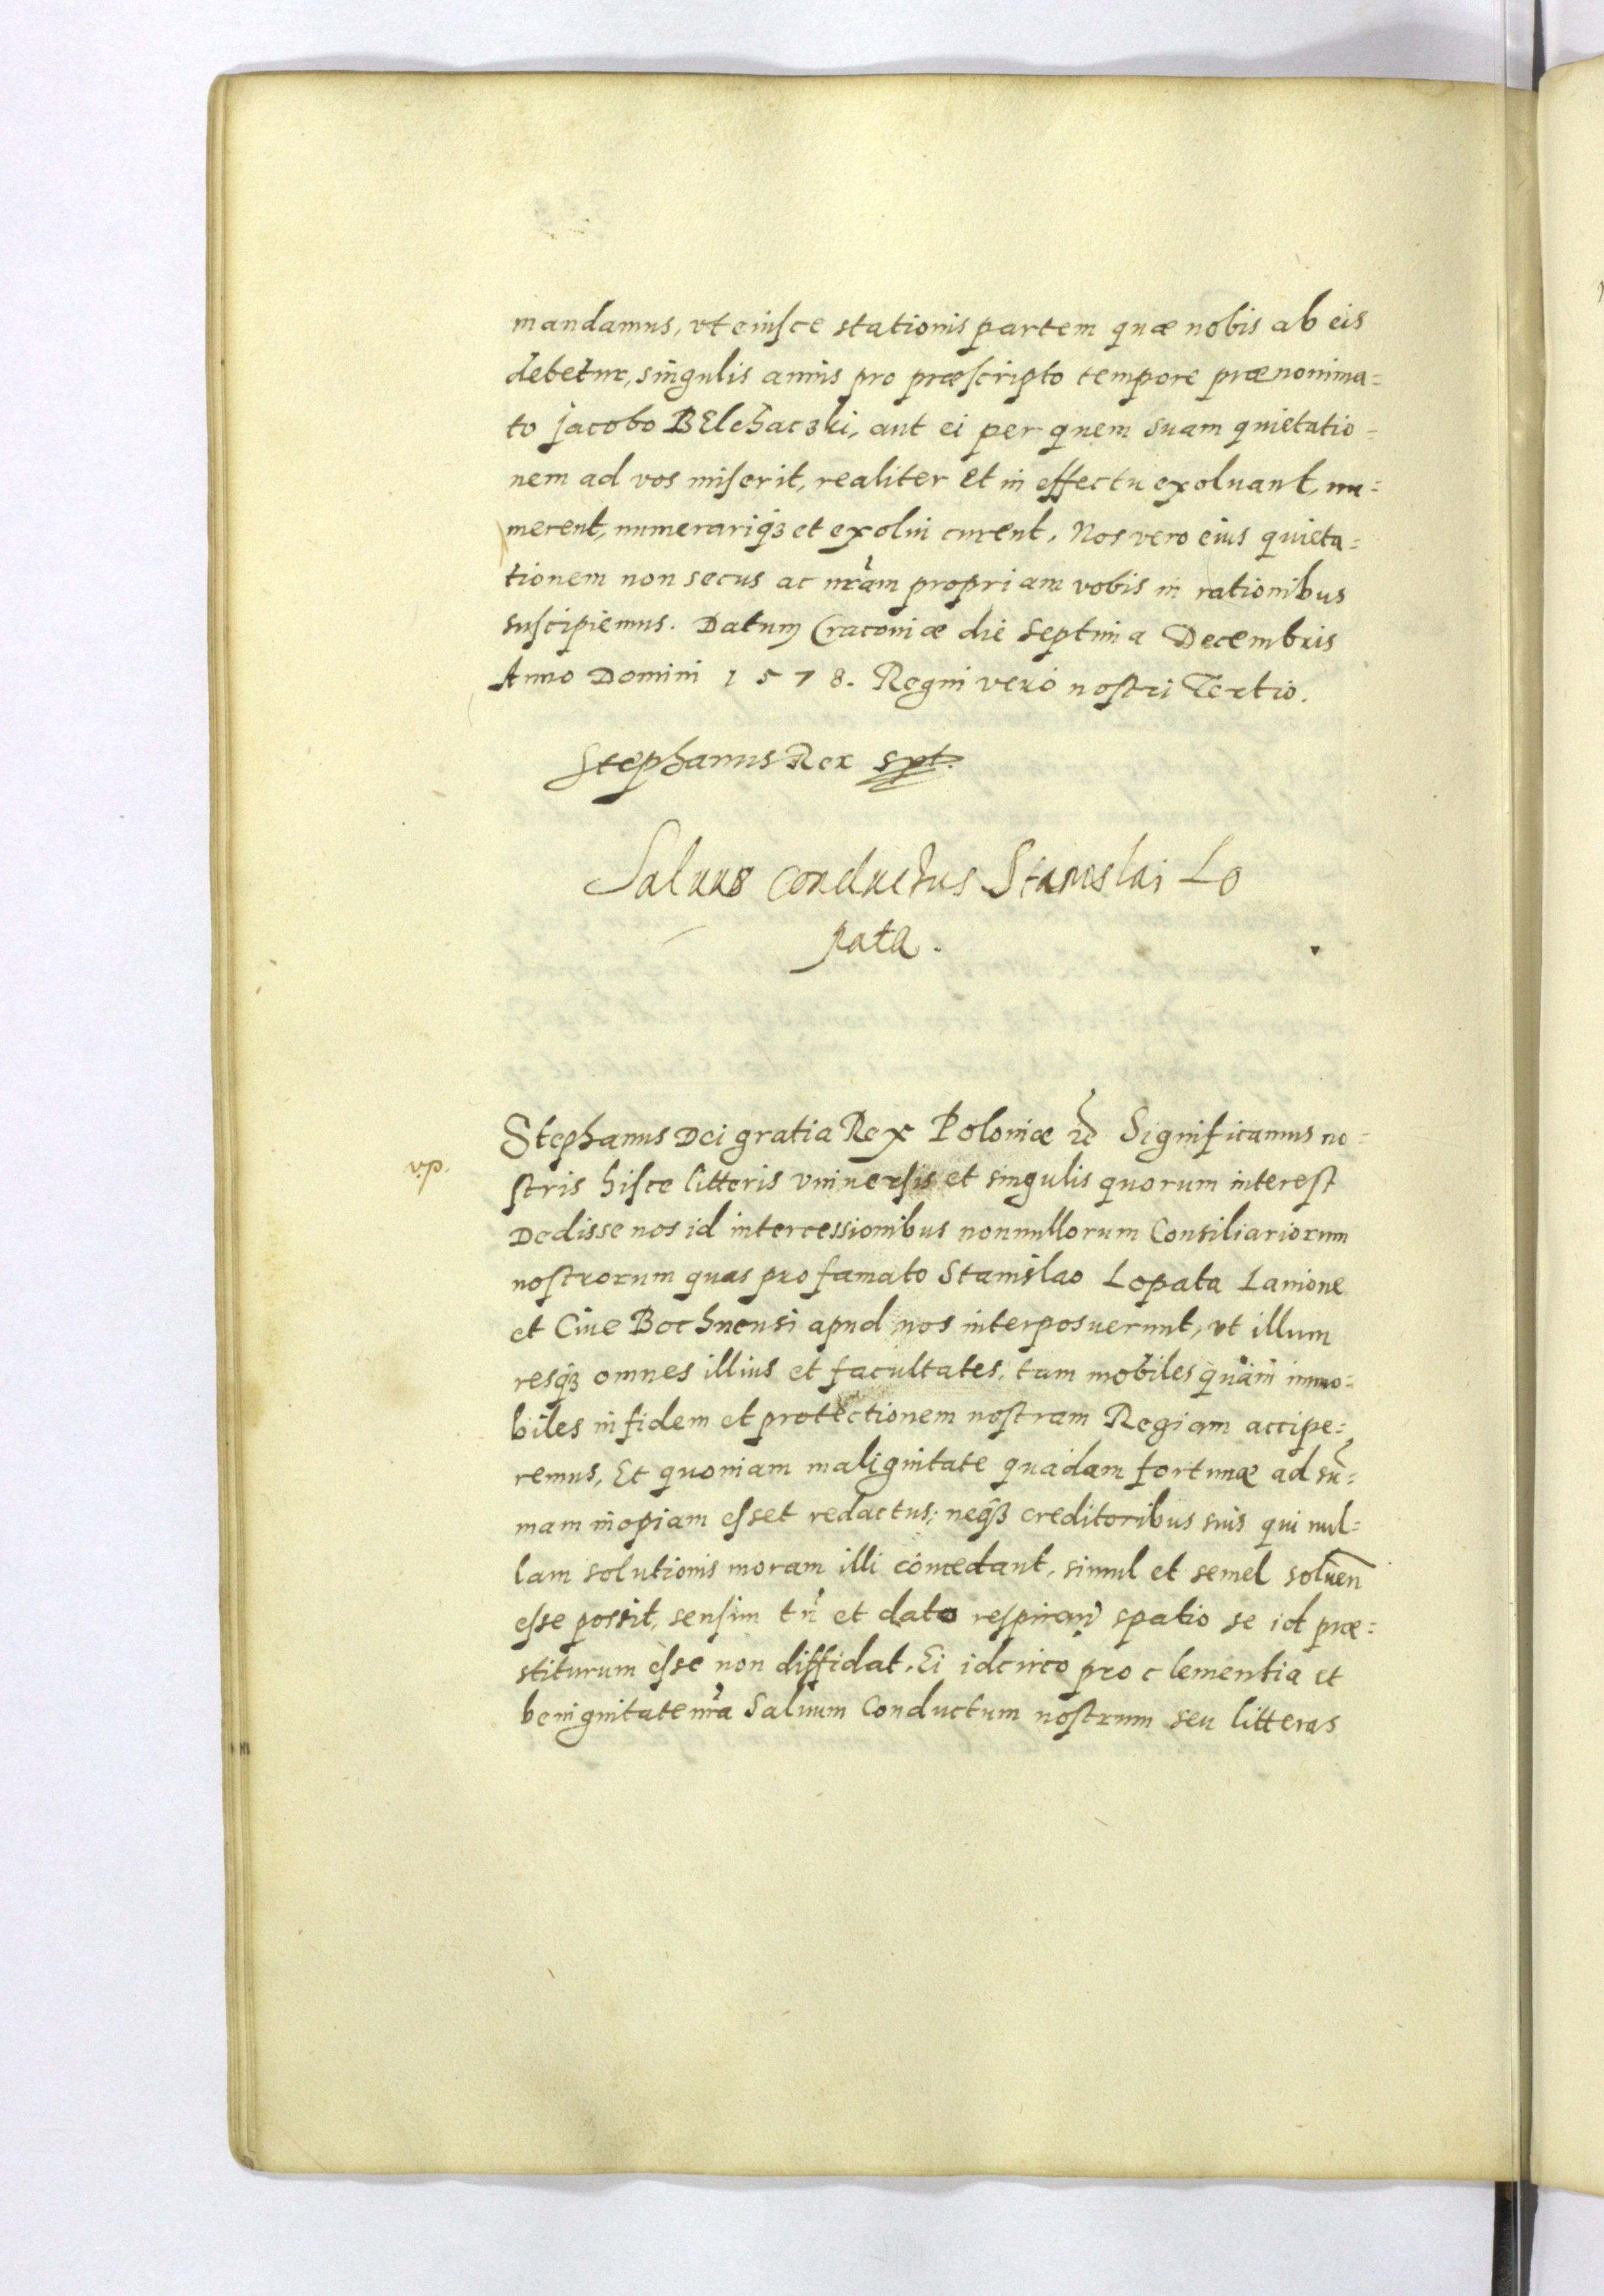 mandamus, vt eiusce stationis partem quæ nobis ab eis
debetur, singulis annis pro præscripto tempore prænomina=
to Jacobo BElchaczki, aut ei per quem suam quietatio=
nem ad vos miserit, realiter et in effectu exoluant, nu=
merent, numerariq3 et exolui curent. Nos vero eius quieta=
tionem non secus ac nr̃am propriam vobis in rationibus
suscipiemus. Datum Cracouiæ die septima Decembris
Anno Domini 1578. Regni vero nostri Tertio.
Stephanus Rex sst.
Saluus conductus Stanislai Lo
pata.
Stephanus Dei gratia Rex Poloniæ &c̃ Significamus no=
v.p.
stris hisce litteris vniuersis et singulis quorum interest
Dedisse nos id intercessionibus nonnullorum Consiliariorum
nostrorum quas pro famato Stanislao Lopata Lanione
et Ciue Bochnensi apud nos interposuerunt, vt illum
resq3 omnes illius et facultates, tam mobiles quàm immo=
biles in fidem et protectionem nostram Regiam accipe=
remus, Et quoniam malignitate quadam fortunæ ad sũ=
mam inopiam esset redactus; neq3 creditoribus suis qui nul=
lam solutionis moram illi concedant, simul et semel soluen̄
esse possit, sensim tñ et dato respiran̄ spatio se id præ=
stiturum esse non diffidat. Ei idcirco pro clementia et
benignitate nr̃a Saluum Conductum nostrum seu litteras